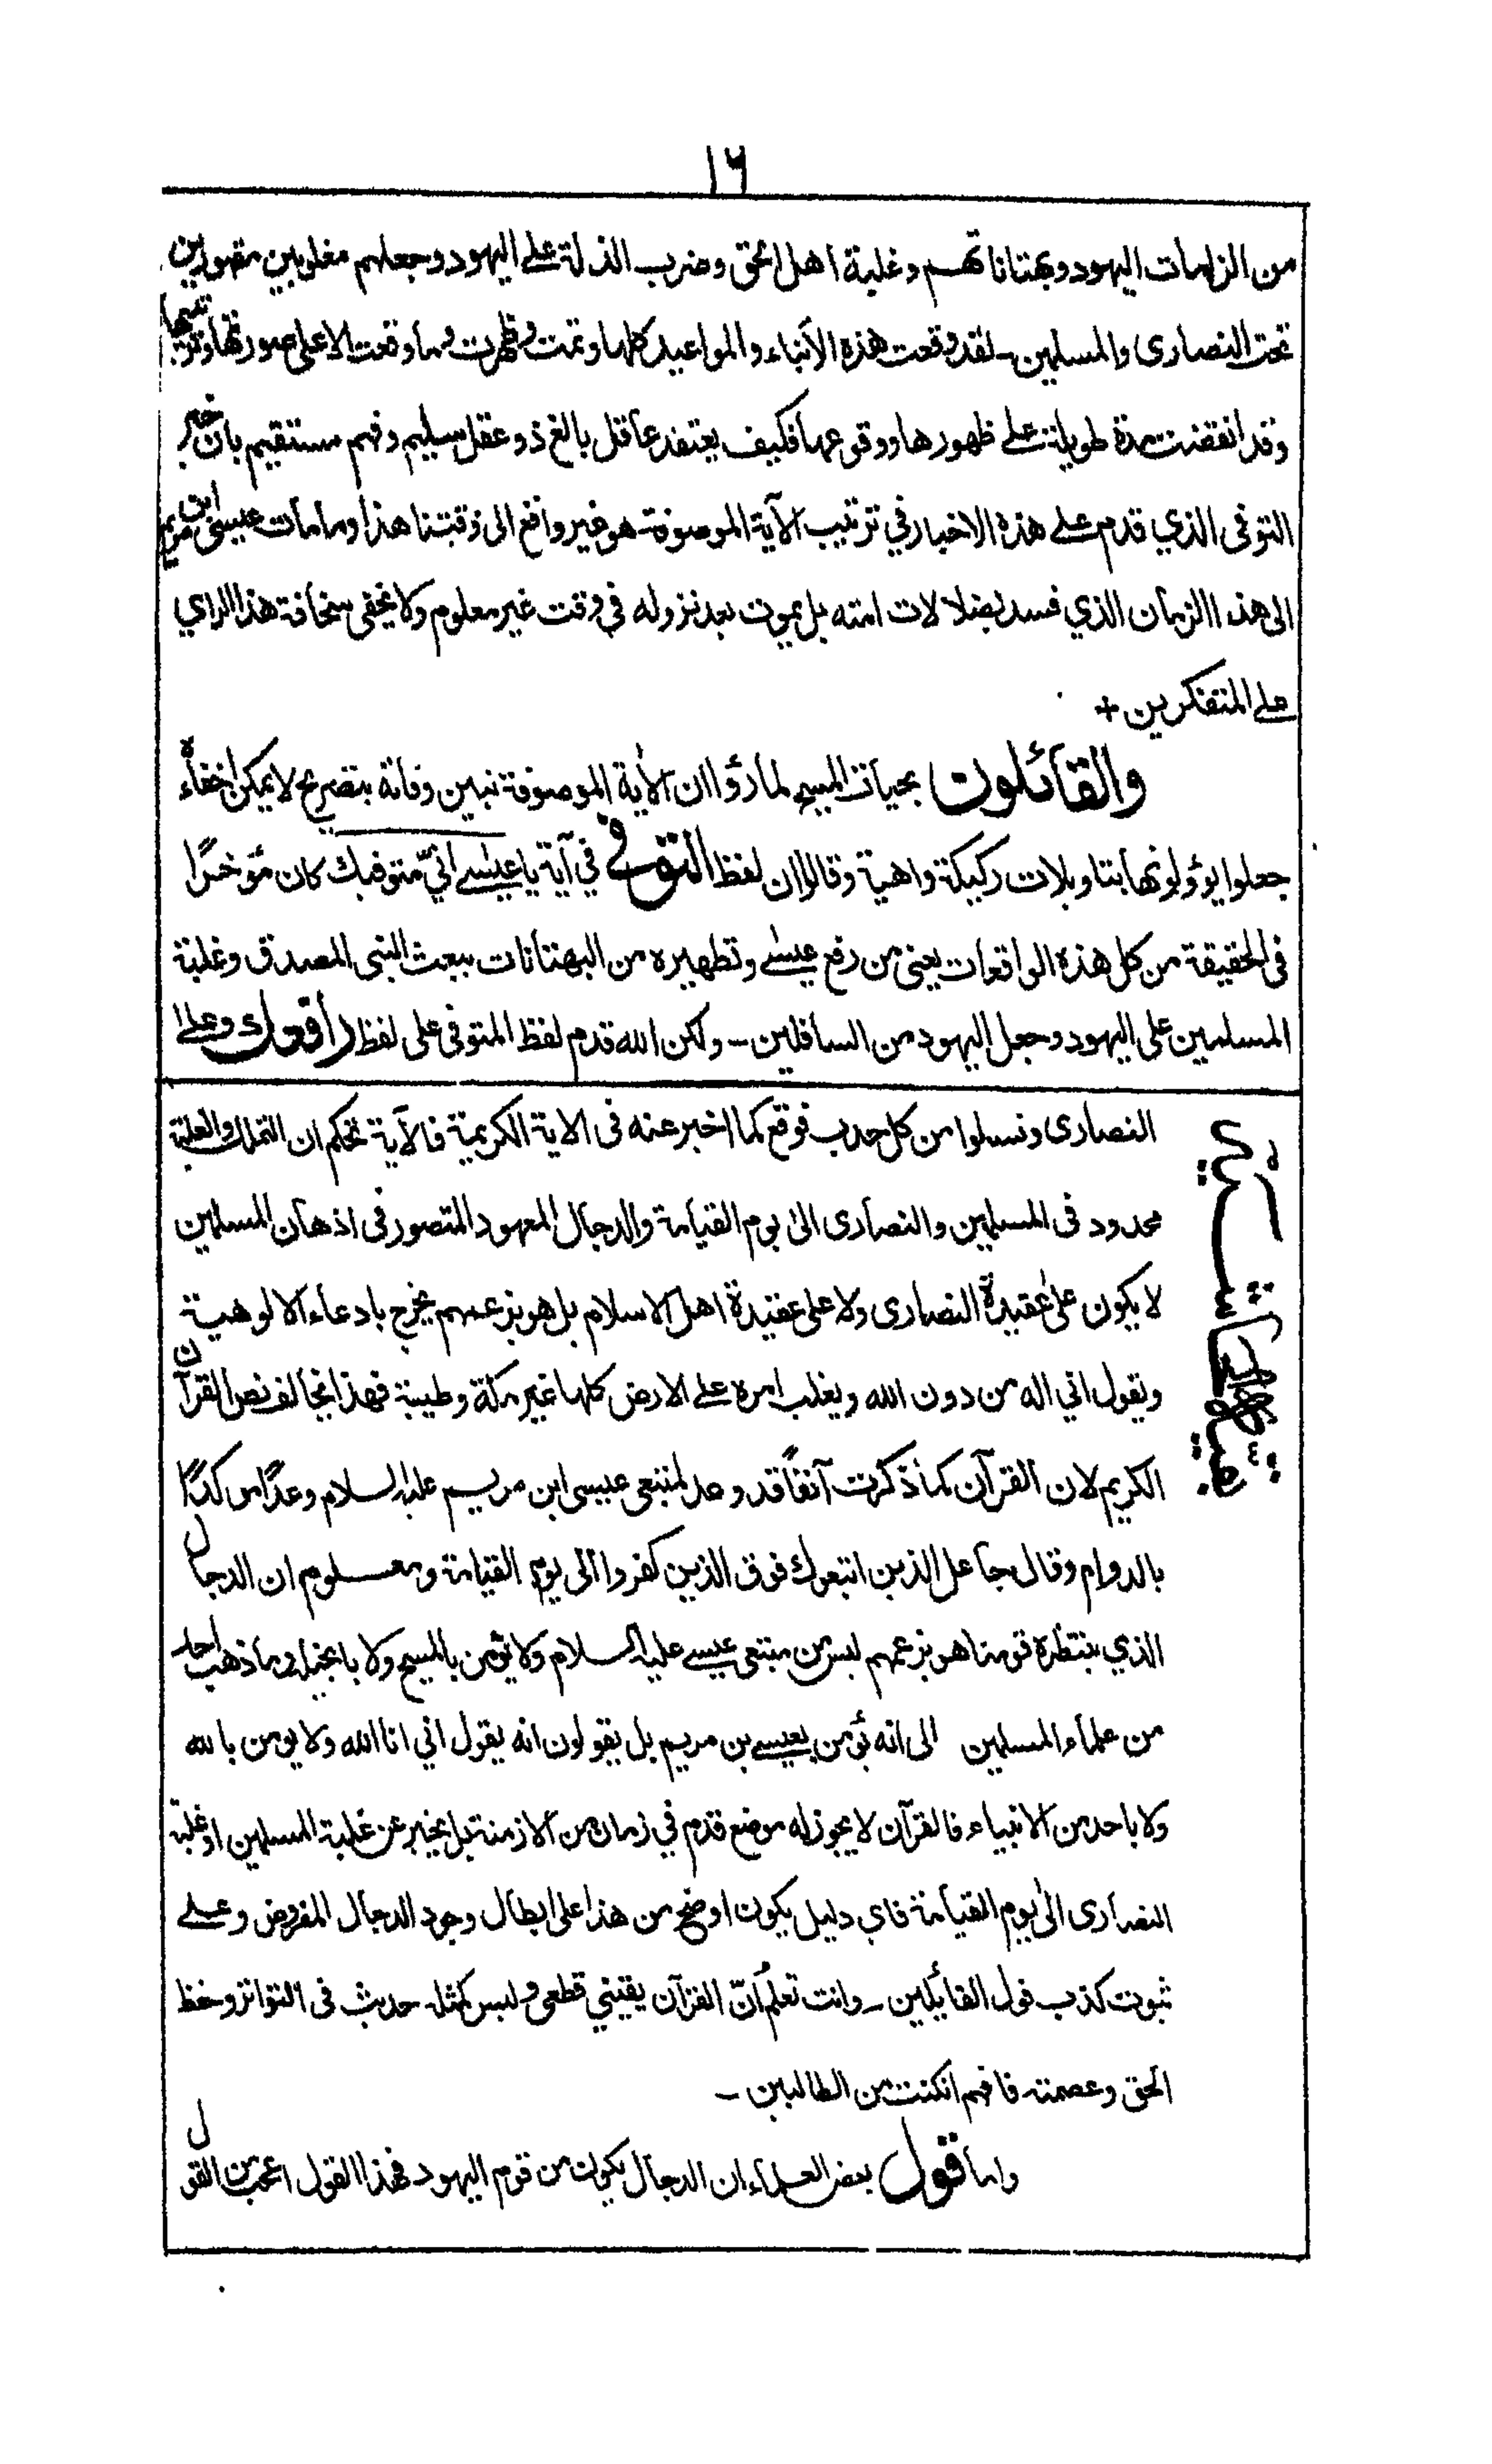 ١٦
من الزامات اليهود وبهتاناتهم وغلبة اهل الحق وضرب الذلة على اليهود وجعلهم مغلوبين مقهورين
تحت النصارى والمسلمين ـ لقد وقعت هذه الأنباء والمواعيد كلها وتمت وظهرت وما وقعت الا على صورتها وترتيبها
وقد انقضت مدة طويلة على ظهورها ووقوعها فكيف يعتقد عاقل بالغ ذو عقل سليم وفهم مستقيم بان خبر
التوفى الذي قدم على هذه الاخبار في ترتيب الآية الموصوفة هو غير واقع الى وقتنا هذا وما مات عيسى ابن مريم
الى هذا الزمان الذي فسد بضلالات امته بل يموت بعد نزوله في وقت غير معلوم ولا يخفى سخافة هذا الراي
على المتفكرين +
والقائلون بحيات المسيح لما رؤا ان الآية الموصوفة تبين وفاته بتصريح لا يمكن اخفاءه
جعلوا يؤولونها بتاويلات ركيكة واهية وقالوا ان لفظ التوفي في آية يا عيسى اني متوفيك كان مؤخرًا
فى الحقيقة من كل هذه الواقعات يعنى من رفع عيسى وتطهيره من البهتانات ببعث النبى المصدق وغلبة
المسلمين على اليهود وجعل اليهود من السافلين ـ ولكن الله قدم لفظ المتوفى على لفظ رافعك وعلى
النصارى ونسلوا من كل حدب فوقع كما اخبر عنه فى الاية الكريمة فالآية تحكم ان التملك والغلبة
محدود فى المسلمين والنصارى الى يوم القيامة والدجال المعهود المتصور فى اذهان المسلمين
لا يكون على عقيدة النصارى ولا على عقيدة اهل الاسلام بل هو بزعمهم يخرج بادعاء الالوهية
ويقول اني اله من دون الله ويغلب امره على الارض كلها غير مكة وطيبة فهذا يخالف نص القرآن
الكريم لان القرآن كما ذكرت آنفاً قد وعد لمتبعى عيسى ابن مريم عليه السلام وعدًا موكدًا
بالدوام وقال جاعل الذين اتبعوك فوق الذين كفروا الى يوم القيامة ومعلوم ان الدجال
الذي ينتظره قومنا هو بزعمهم ليس من متبعى عيسى عليه السلام ولا يؤمن بالمسيح ولا بانجيله وما ذهب احد
من علماء المسلمين الى انه يؤمن بعيسى بن مريم بل يقولون انه يقول اني انا الله ولا يومن بالله
ولا باحد من الانبياء فالقرآن لا يجوز له موضع قدم في زمان من الازمنة بل يخبر عن غلبة المسلمين او غلبة
النصارى الى يوم القيامة فاي دليل يكون اوضح من هذا على ابطال وجود الدجال المفروض وعلى
ثبوت كذب قول القايلين ـ وانت تعلم انّ القرآن يقيني قطعى وليس كمثله حديث فى التواتر وحفظ
الحق وعصمته فافهم انكنت من الطالبين ـ
واما قول بعض العلماء ان الدجال يكون من قوم اليهود فهذا القول اعجب من القول